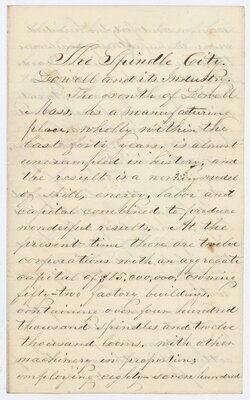 The Spindle City.
Lowell and its Industry.
The growth of Lowell
Mass. as a manufacturing
place, wholly within the
last forty years, is almost
unexampled in history, and
the result is a model
of skill, energy, labor and
capital combined to produce
wonderful results. At the
present time there are twelve
corporations with an aggregate
capital of $15,000,000, owning
fifty-two factory buildings,
containing over four hundred
thousand spindles and twelve
thousand looms, with other
machinery in proportion,
employing eighty-seven hundred